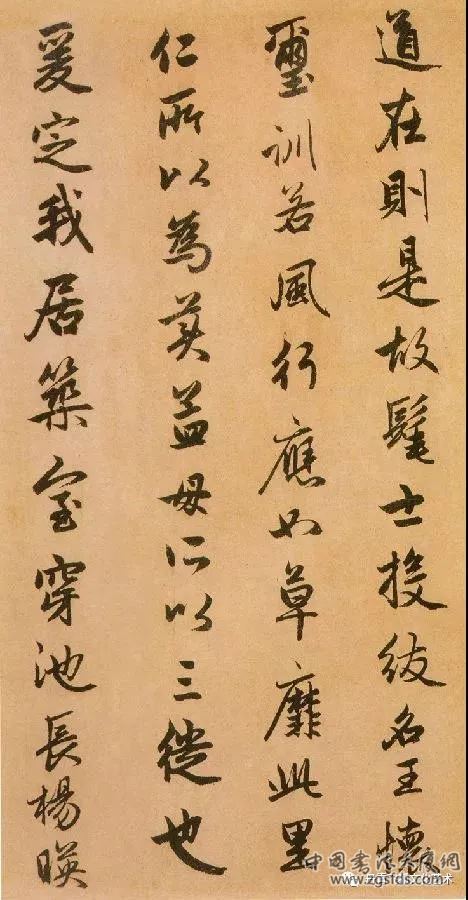 道在則是故髦士投紱名王懷
璽訓若風行應如草靡此里
仁所以為美孟母所以三徙也
爰定我居築室穿池長楊暎
中国书法大厦网
www.zgsfds.com